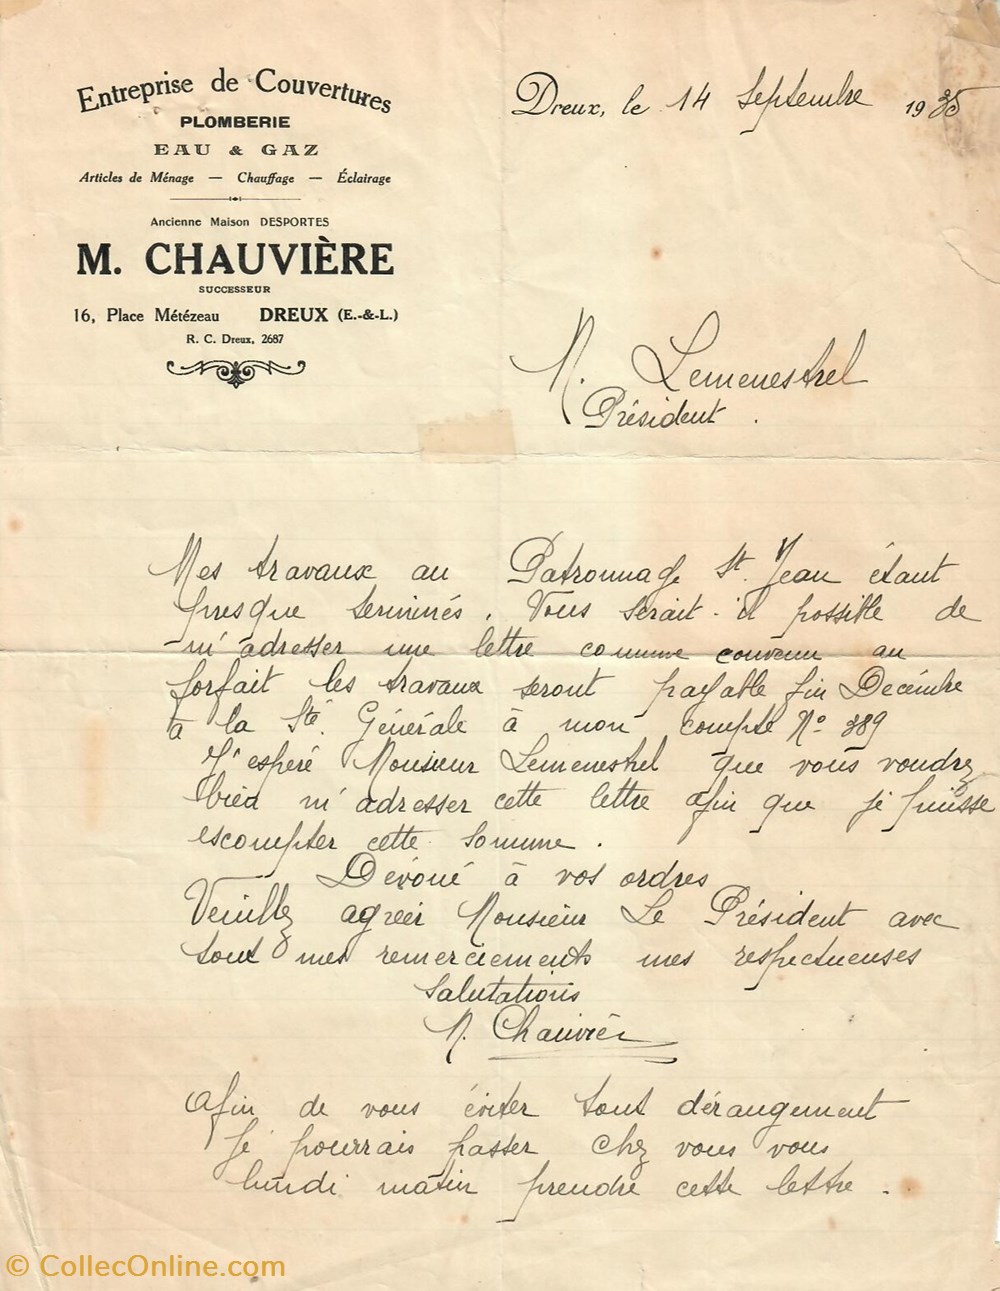 Entreprise de Couvertures
PLOMBERIE
EAU & GAZ
Articles de Ménage — Chauffage — Éclairage
Ancienne Maison DESPORTES
M. CHAUVIÈRE
SUCCESSEUR
16, Place Métézeau DREUX (E.-&-L.)
R. C. Dreux, 2687
Dreux, le 14 Septembre 1935
M. Lemenestrel
Président.
Mes travaux au Patronnage St. Jean étant
presque terminés. Vous serait-il possible de
m'adresser une lettre comme convenu au
forfait les travaux seront payable fin Decembre
à la Sté. Générale à mon compte No 389
J'espéré Monsieur Lemenestrel que vous voudrez
bien m'adresser cette lettre afin que je puisse
escompter cette somme.
Dévoué à vos ordres
Veuillez agréer Monsieur Le Président avec
tout mes remerciements mes respectueuses
salutations
M. Chauvière
Afin de vous éviter tout dérangement
Je pourrais passer chez vous vous
lundi matin prendre cette lettre.
© CollecOnline.com